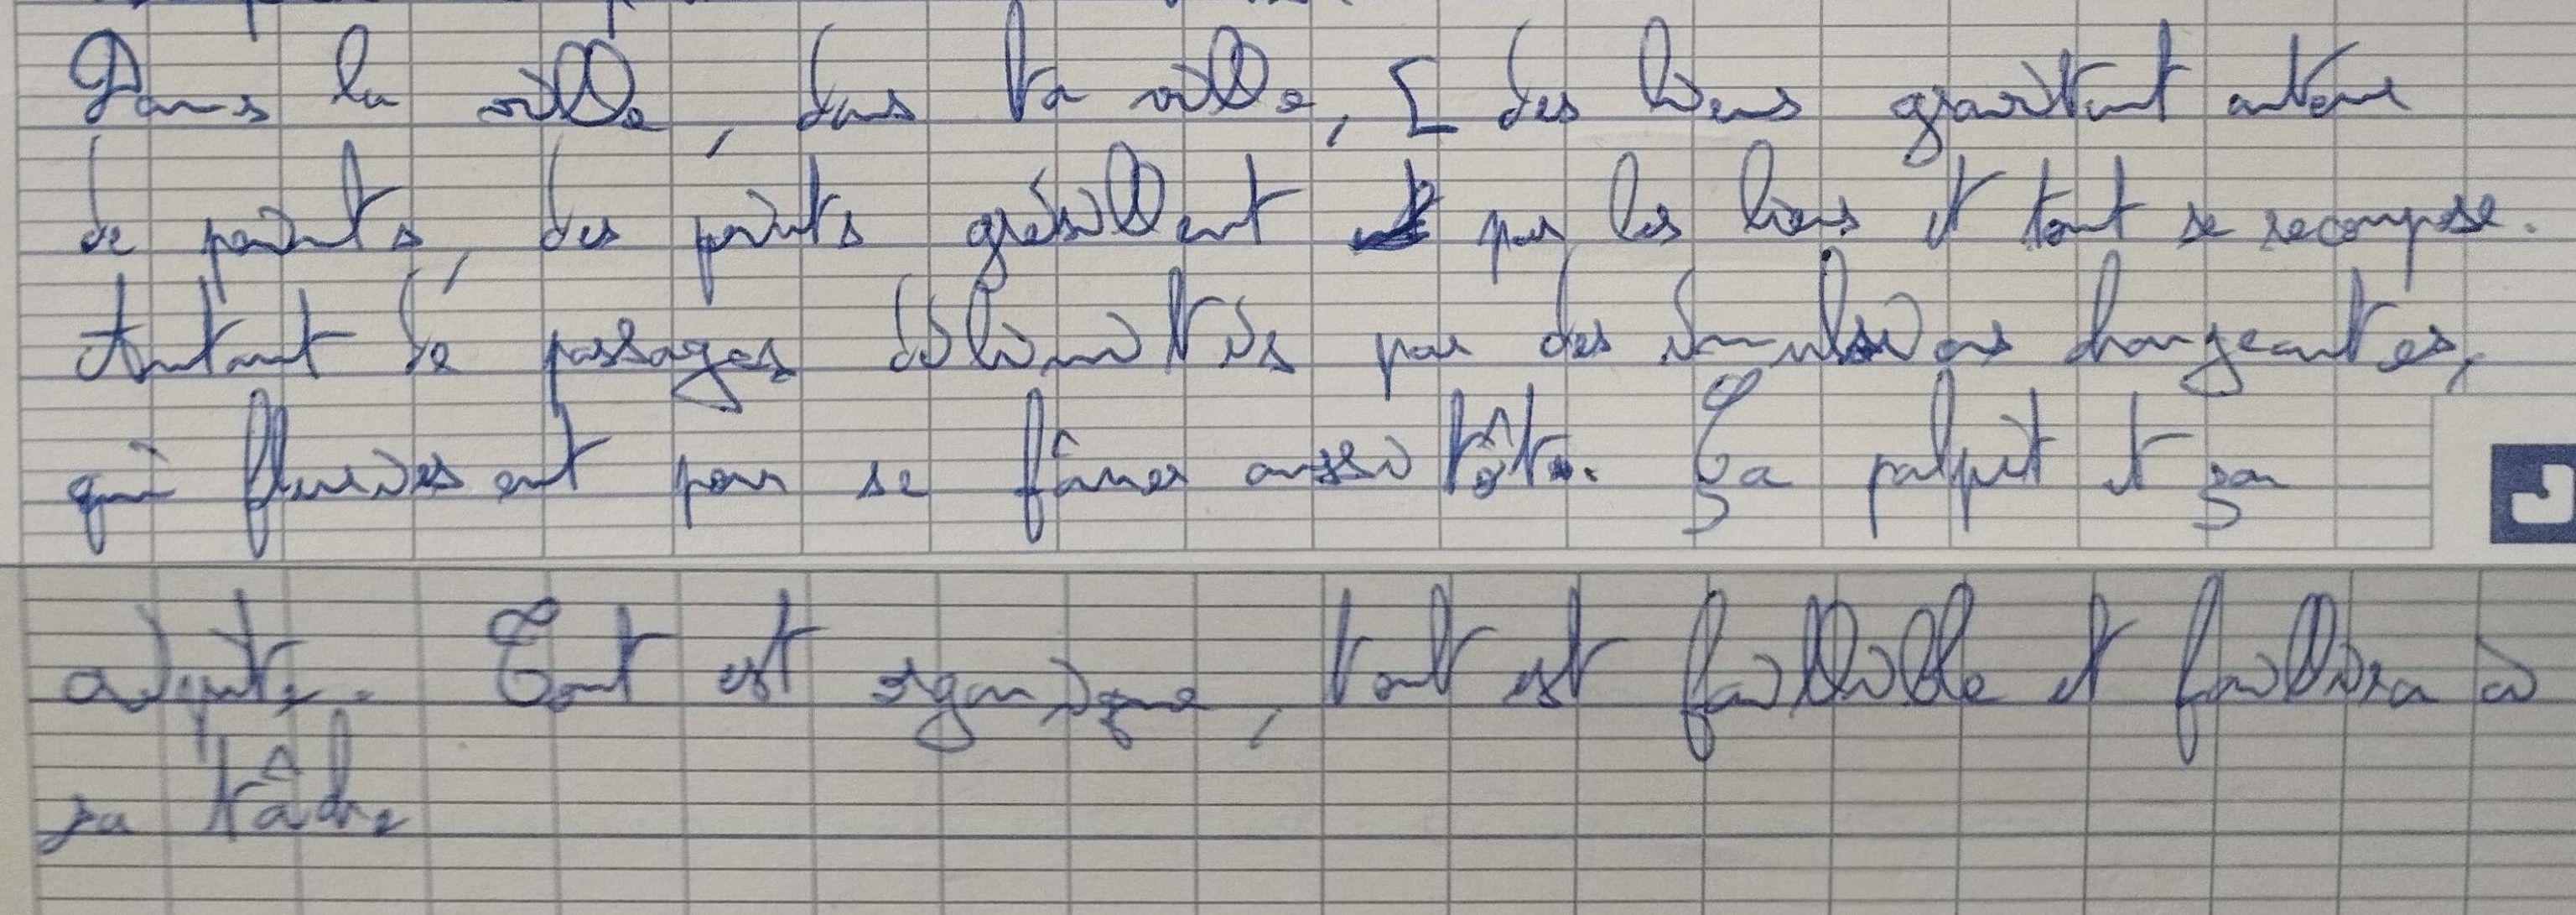 Dans la ville, dans ta ville, [ des liens gravitent autour
de points, des points grésillent par les liens et tout se recompose.
Autant de passages délimités par des impulsions changeantes,
qui fleurissent pour se fâner aussitôt. Ça palpit et ça
adjute. Tout est organique, tout est faillible et faillira à
sa tâche